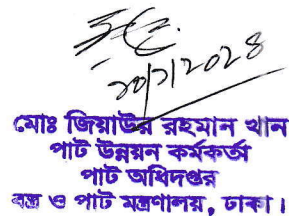 ২০/১/২০২৪
মোঃ জিয়াউর রহমান খান
পাট উন্নয়ন কর্মকর্তা
পাট অধিদপ্তর
বস্ত্র ও পাট মন্ত্রণালয়, ঢাকা।